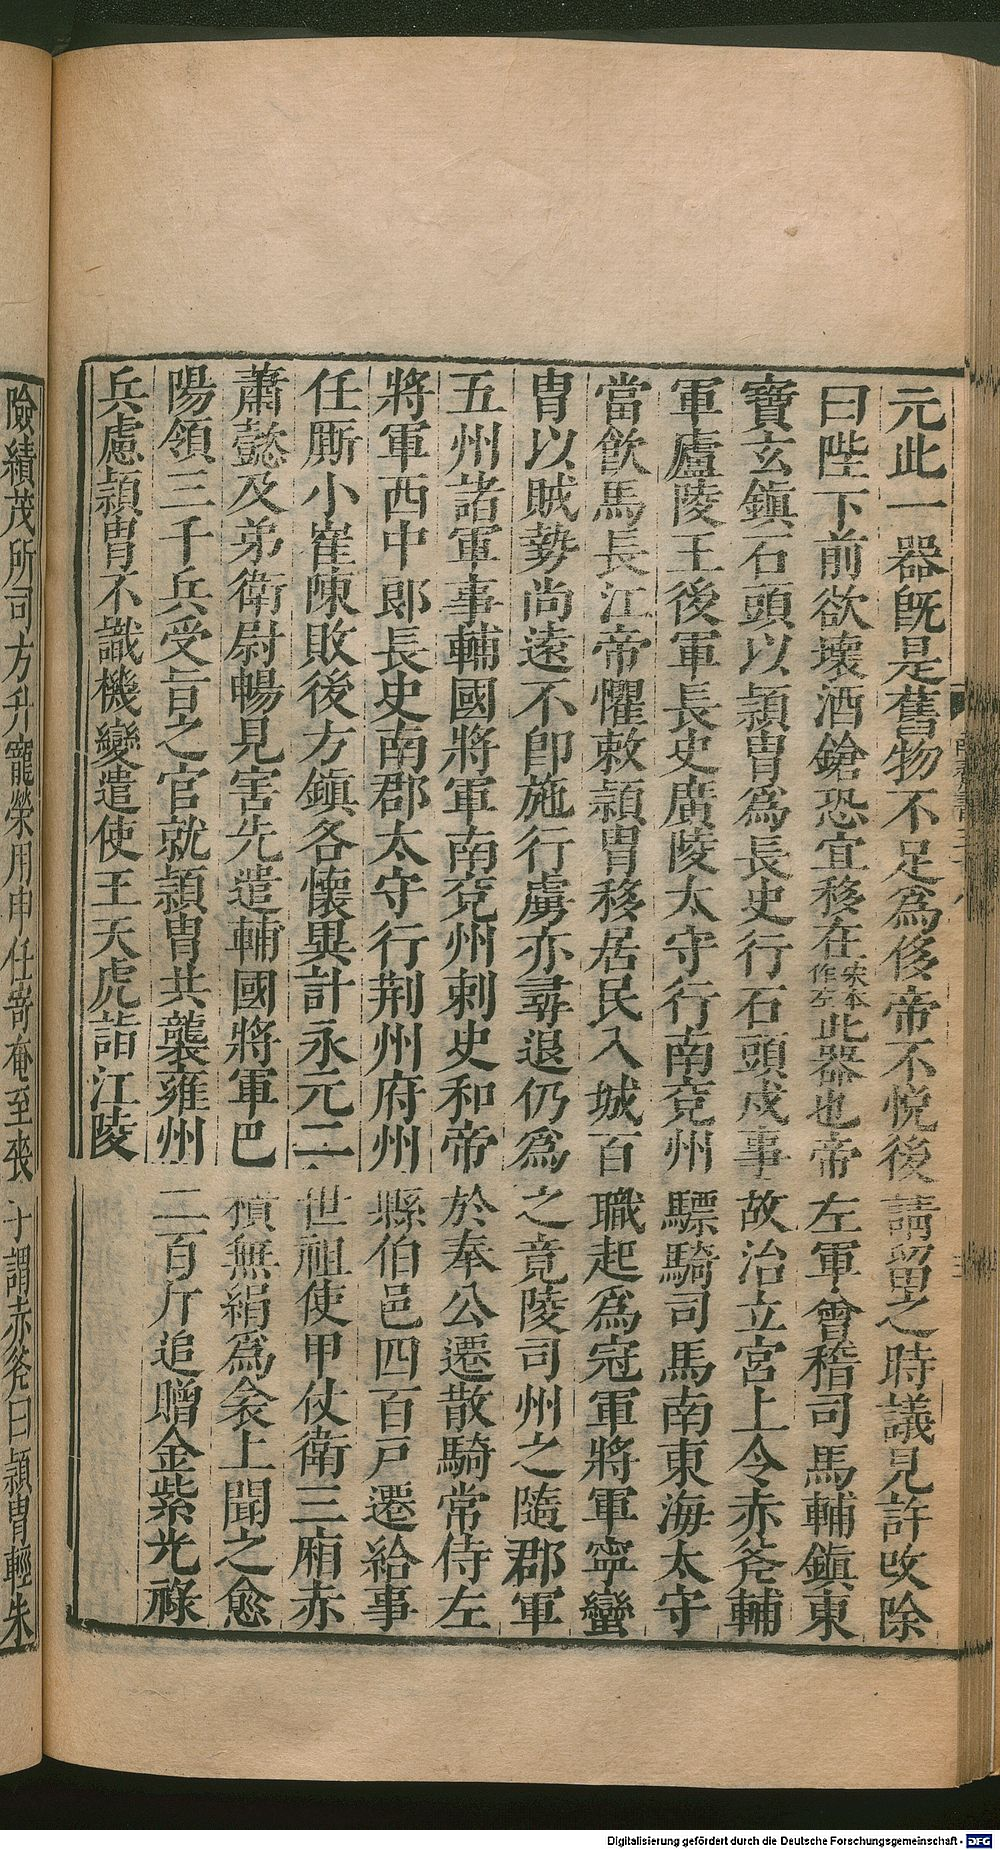 元此一器旣是舊物不足爲侈帝不悅後請留之時議見許改除
曰陛下前欲壞酒鎗恐宜移在宋本作左此器也帝左軍會稽司馬輔鎮東
寶玄鎮石頭以頴胄爲長史行石頭戍事故治立宮上令赤斧輔
軍廬陵王後軍長史廣陵太守行南兗州驃騎司馬南東海太守
當飲馬長江帝懼敕頴胄移居民入城百職起爲冠軍將軍寧蠻
胄以賊勢尚遠不卽施行虜亦尋退仍爲之竟陵司州之隨郡軍
五州諸軍事輔國將軍南兗州刺史和帝於奉公遷散騎常侍左
將軍西中郎長史南郡太守行荆州府州縣伯邑四百戸遷給事
任厮小崔陳敗後方鎮各懷異計永元二世祖使甲仗衛三廂赤
蕭懿及弟衛尉暢見害先遣輔國將軍巴積無絹爲衾上聞之愈
陽領三千兵受旨之官就頴胄共襲雍州二百斤追贈金紫光祿
兵慮頴胄不識機變遣使王天虎詣江陵
險績茂所司方升寵榮用申任寄奄至喪十謂赤斧曰頴胄輕朱
Digitalisierung gefördert durch die Deutsche Forschungsgemeinschaft - DFG